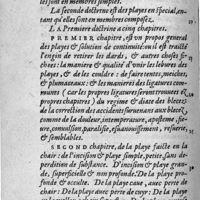 sont en membres simples.
La seconde doctrine est des playes en special, en-
tant qu'elles sont en membres composez.
LA Premiere doctrine a cinq chapitres.
PREMIER chapitre, est vn propos general
des playes & solution de continuité: ou il est traité
l'engin de retirer les dards, & autres choses
bees: la maniere & qualité d'vnir les leures des
playes, & de les couldre: de faire tentes, meiches,
& plumaceaux: & les manieres des ligatures com-
munes (car les propres ligatures seront trouuees es
propres chapitres) du regime & diete des blecez:
de la correction des accidens suruenans aux blecez
comme de la douleur, intemperature, aposteme,
ure, conuulsion, paralisie, esuanouissement, resuerie,
& semblables.
SECOND chapitre, de la playe faicte en la
chair: de l'incision & playe simple, petite, sans de-
perdition de substance. D'incision & playe gran-
de, superficielle & non profonde. De la playe pro-
fonde & occulte. De la playe caue, auec perte de
chair: De la playe auec perte de cuyr: De la playe